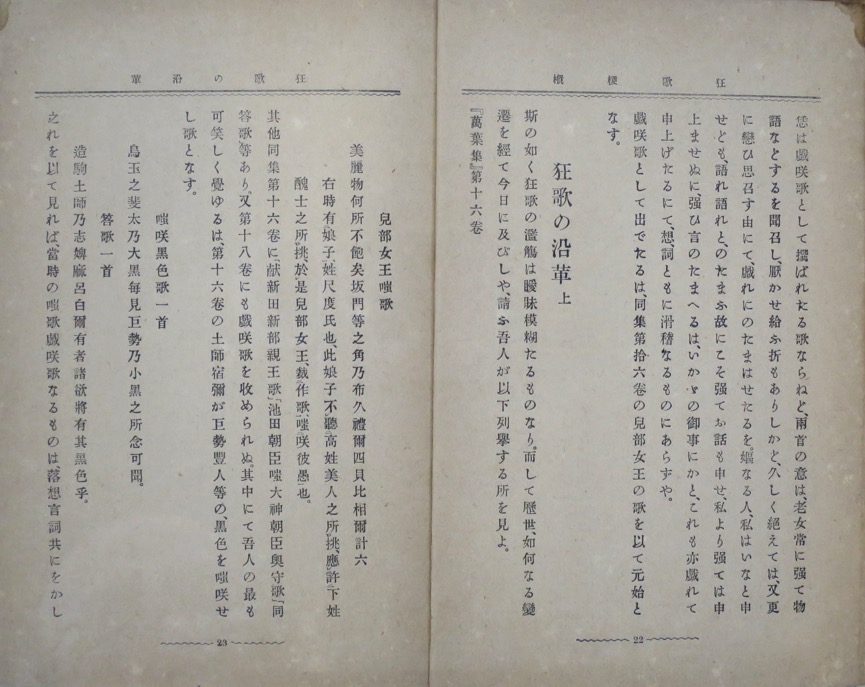 狂歌梗概
恁は戯咲歌として撰ばれたる歌ならねど、兩首の意は、老女常に强て物
語などするを聞召し、厭かせ給ふ折もありしかど、久しく絕えては、又更
に戀ひ思召す由にて、戯れにのたまはせたるを。嫗なる人、私はいなと申
せども、語れ語れと、のたまふ故にこそ强てお話も申せ、私より强ては申
上ませぬに、强ひ言のたまへるは、いかゞの御事にかと、これも亦戯れて
申上げたるにて、想、詞ともに滑稽なるものにあらずや。
戯咲歌として出でたるは、同集第拾六卷の兒部女王の歌を以て元始と
なす。
狂歌の沿革 上
斯の如く狂歌の濫觴は曖昧模糊たるものなり。而して歷世、如何なる變
遷を經て今日に及びしや、請ふ吾人が以下列擧する所を見よ。
『萬葉集』第十六卷
22
狂歌の沿革
兒部女王嗤歌
美麗物何所不飽矣坂門等之角乃布久禮爾四貝比相爾計六
右時有娘子、姓尺度氏也、此娘子不聽高姓美人之所挑、應許下姓
醜士之所挑、於是兒部女王、裁作歌、嗤咲彼愚也。
其他同集第十六卷に、「献新田新部親王歌」「池田朝臣嗤大神朝臣奧守歌」「同
答歌」等あり。又第十八卷にも戯咲歌を收められぬ。其中にて吾人の最も
可笑しく覺ゆるは、第十六卷の土師宿彌が巨勢豐人等の、黑色を嗤咲せ
し歌となす。
嗤咲黑色歌一首
烏玉之斐太乃大黑每見巨勢乃小黑之所念可聞。
答歌一首
造駒土師乃志婢麻呂白爾有者諸欲將有其黑色乎。
之れを以て見れば、當時の嗤歌戯咲歌なるものは、落想言詞共にをかし
23